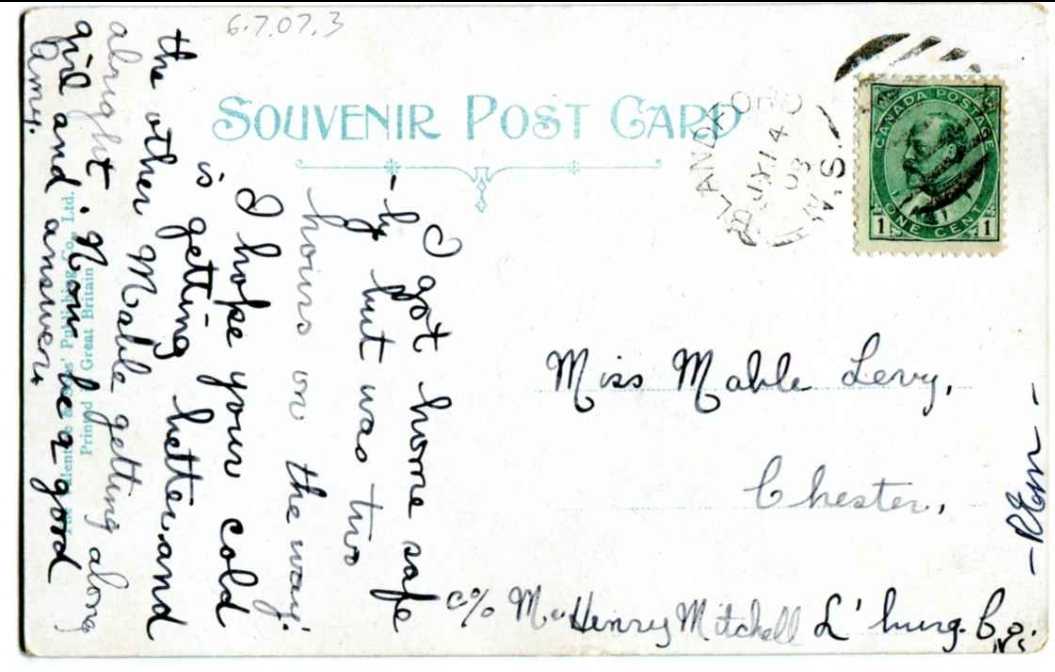 6.7.07.3
SOUVENIR POST CARD
CANADA POSTAGE
ONE CENT
1 1
N.S.
I got home safe
-ly but was two
hours on the way.
I hope your cold
is getting better and
the other Mable getting along
alright. Now be a good
girl and answer.
Amy.
Miss Mable Levy,
Chester,
c/o Mr Henry Mitchell L'burg. Co,
Valentine & Sons' Publishing Co., Ltd.
Printed Great Britain